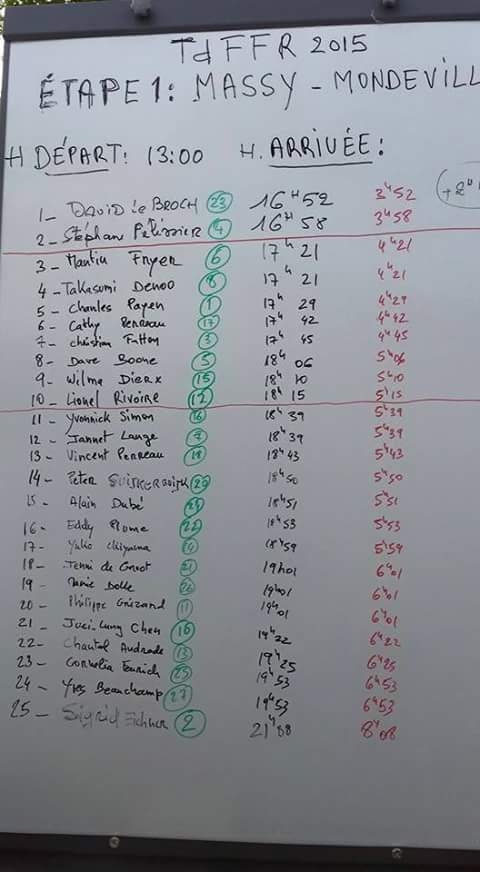 TdFFR 2015
ÉTAPE 1: MASSY - MONDEVILL
H DÉPART: 13:00 H. ARRIVÉE:
1 - DAVID le BROCH 23 16H52 3H52
2 - Stéphane Pélissier 4 16H58 3H58
3 - Martin Fryer 6 17h 21 4h21
4 - Takasumi Denoo 8 17h 21 4h21
5 - Charles Payen 1 17h 29 4h29
6 - Cathy Perreau 17 17h 42 4h42
7 - Christian Fatton 3 17h 45 4h45
8 - Dave Boone 5 18h 06 5h06
9 - Wilma Dierx 15 18h 10 5h10
10 - Lionel Rivoire 12 18h 15 5h15
11 - Yvonnick Simon 16 18h 39 5h39
12 - Jannet Lange 7 18h 39 5h39
13 - Vincent Perreau 18 18h 43 5h43
14 - Peter 18h50 5h50
15 - Alain Dubé 18h51 5h51
16 - Eddy Plume 22 18h53 5h53
17 - Yuko 18h59 5h59
18 - Jenni de Groot 21 19h01 6h01
19 - Dolle 19h01 6h01
20 - Philippe 11 19h01 6h01
21 - Juei-Lung Chen 19h22 6h22
22 - Chantal Andrade 13 19h25 6h25
23 - Cornelia 25 19h53 6h53
24 - Yves Beauchamp 27 19h53 6h53
25 - Sigrid Eichner 2 21h08 8h08